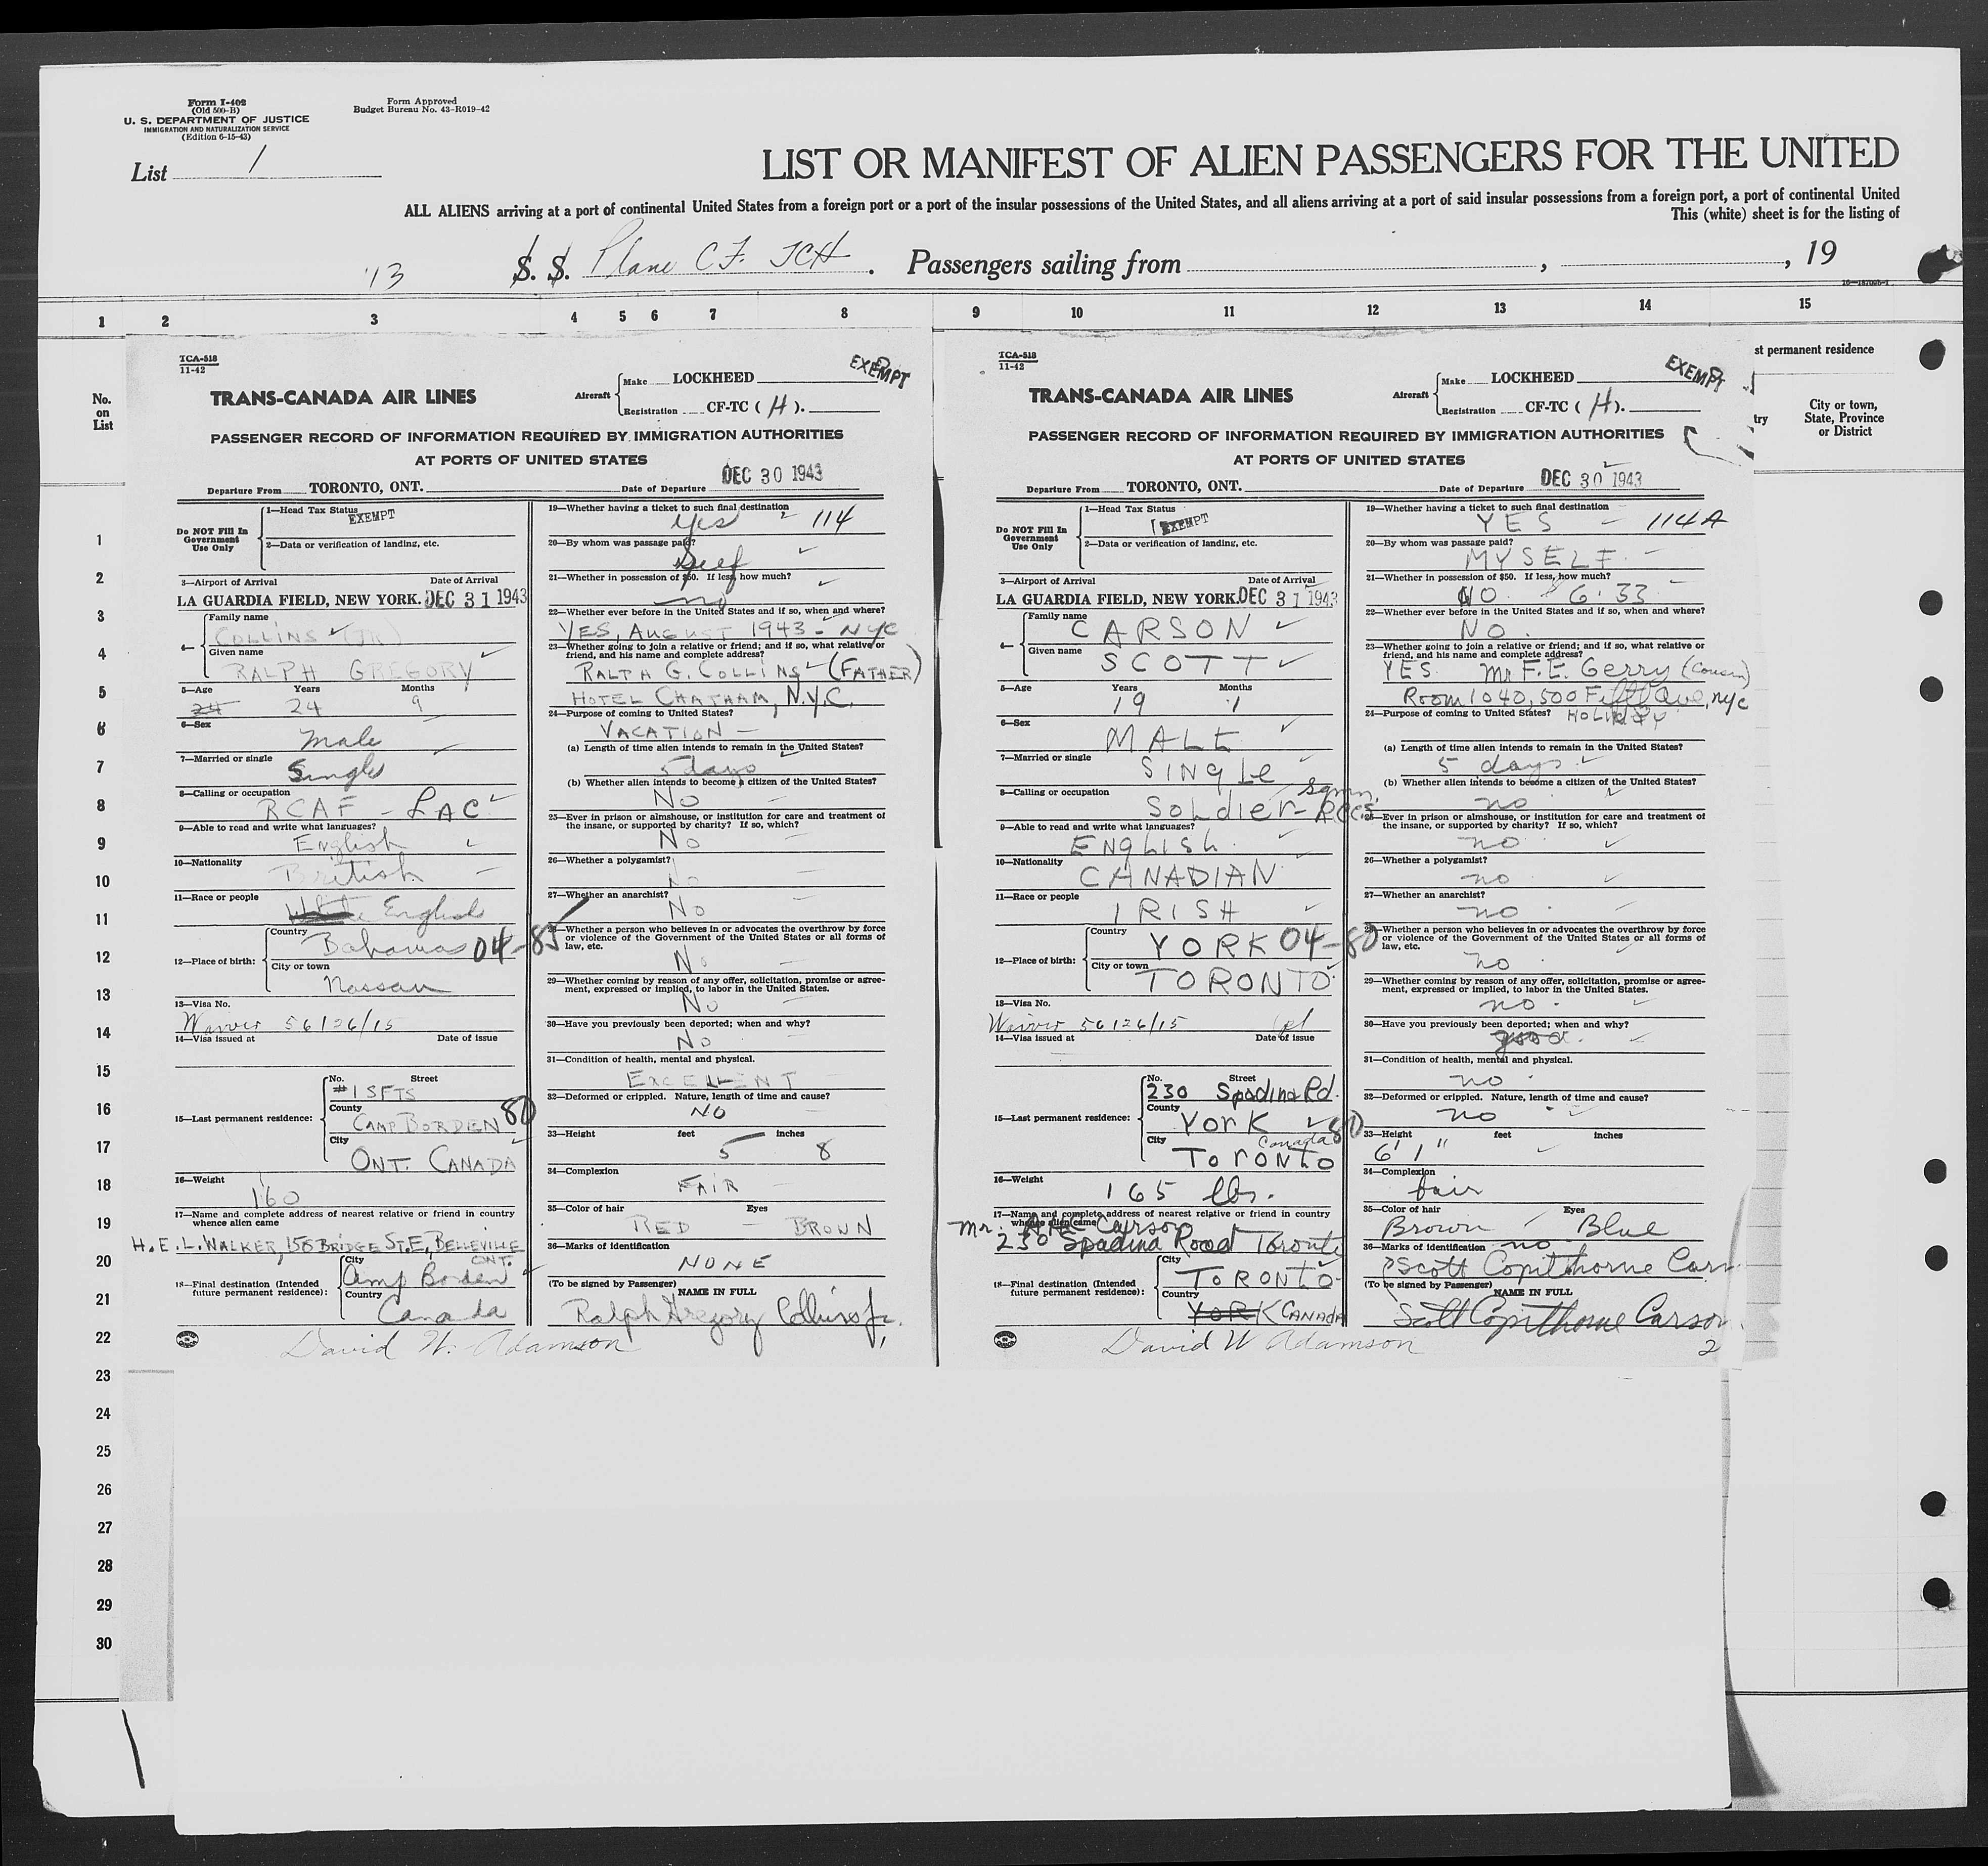 Form I-402
(Old 500-B)
U. S. DEPARTMENT OF JUSTICE
IMMIGRATION AND NATURALIZATION SERVICE
(Edition 6-15-43)
Form Approved
Budget Bureau No. 43-R019-42
List 1
LIST OR MANIFEST OF ALIEN PASSENGERS FOR THE UNITED
ALL ALIENS arriving at a port of continental United States from a foreign port or a port of the insular possessions of the United States, and all aliens arriving at a port of said insular possessions from a foreign port, a port of continental United
This (white) sheet is for the listing of
13 S. S. Plane CF. TCH . Passengers sailing from , , 19
1 2 3 4 5 6 7 8 9 10 11 12 13 14 15
No.
on
List
st permanent residence
try
City or town,
State, Province
or District
1
2
3
4
5
6
7
8
9
10
11
12
13
14
15
16
17
18
19
20
21
22
23
24
25
26
27
28
29
30
TCA-518
11-42
EXEMPT
TRANS-CANADA AIR LINES
Aircraft
Make LOCKHEED
Registration CF-TC ( H ).
PASSENGER RECORD OF INFORMATION REQUIRED BY IMMIGRATION AUTHORITIES
AT PORTS OF UNITED STATES
Departure From TORONTO, ONT. Date of Departure DEC 30 1943
Do NOT Fill In
Government
Use Only
1—Head Tax Status
EXEMPT
2—Data or verification of landing, etc.
3—Airport of Arrival Date of Arrival
LA GUARDIA FIELD, NEW YORK. DEC 31 1943
4—
Family name
COLLINS (JR)
Given name
RALPH GREGORY
5—Age Years Months
24 24 9
6—Sex
Male
7—Married or single
Single
8—Calling or occupation
RCAF - LAC
9—Able to read and write what languages?
English
10—Nationality
British
11—Race or people
White English
12—Place of birth:
Country
Bahamas 04-85
City or town
Nassau
13—Visa No.
Waiver 56126/15
14—Visa issued at Date of issue
15—Last permanent residence:
No. Street
#1 SFTS
County
CAMP BORDEN 80
City
ONT. CANADA
16—Weight
160
17—Name and complete address of nearest relative or friend in country
whence alien came
H. E. L. WALKER, 158 BRIDGE ST. E., BELLEVILLE
ONT.
18—Final destination (Intended
future permanent residence):
City
Camp Borden
Country
Canada
David W. Adamson
19—Whether having a ticket to such final destination
Yes 114
20—By whom was passage paid?
Self
21—Whether in possession of $50. If less, how much?
no
22—Whether ever before in the United States and if so, when and where?
YES, AUGUST 1943 - NYC
23—Whether going to join a relative or friend; and if so, what relative or
friend, and his name and complete address?
RALPH G. COLLINS (FATHER)
HOTEL CHATHAM, N.Y.C.
24—Purpose of coming to United States?
VACATION
(a) Length of time alien intends to remain in the United States?
5 days
(b) Whether alien intends to become a citizen of the United States?
No
25—Ever in prison or almshouse, or institution for care and treatment of
the insane, or supported by charity? If so, which?
No
26—Whether a polygamist?
No
27—Whether an anarchist?
No
28—Whether a person who believes in or advocates the overthrow by force
or violence of the Government of the United States or all forms of
law, etc.
No
29—Whether coming by reason of any offer, solicitation, promise or agree-
ment, expressed or implied, to labor in the United States.
No
30—Have you previously been deported; when and why?
No
31—Condition of health, mental and physical.
EXCELLENT
32—Deformed or crippled. Nature, length of time and cause?
NO
33—Height feet inches
5 8
34—Complexion
FAIR
35—Color of hair Eyes
RED - BROWN
36—Marks of identification
NONE
(To be signed by Passenger) NAME IN FULL
Ralph Gregory Collins Jr.
1
TCA-518
11-42
EXEMPT
TRANS-CANADA AIR LINES
Aircraft
Make LOCKHEED
Registration CF-TC ( H ).
PASSENGER RECORD OF INFORMATION REQUIRED BY IMMIGRATION AUTHORITIES
AT PORTS OF UNITED STATES
Departure From TORONTO, ONT. Date of Departure DEC 30 1943
Do NOT Fill In
Government
Use Only
1—Head Tax Status
EXEMPT
2—Data or verification of landing, etc.
3—Airport of Arrival Date of Arrival
LA GUARDIA FIELD, NEW YORK. DEC 31 1943
4—
Family name
CARSON
Given name
SCOTT
5—Age Years Months
19 1
6—Sex
MALE
7—Married or single
SINGLE
8—Calling or occupation
SOLDIER-
9—Able to read and write what languages?
ENGLISH
10—Nationality
CANADIAN
11—Race or people
IRISH
12—Place of birth:
Country
YORK 04-80
City or town
TORONTO
13—Visa No.
Waiver 56126/15
14—Visa issued at Date of issue
15—Last permanent residence:
No. Street
230 Spadina Rd.
County
York 80
City
Canada
TORONTO
16—Weight
165 lbs.
17—Name and complete address of nearest relative or friend in country
whence alien came
Mr. Carson
230 Spadina Road Toronto
18—Final destination (Intended
future permanent residence):
City
TORONTO
Country
YORK CANADA
David W Adamson
19—Whether having a ticket to such final destination
YES 114A
20—By whom was passage paid?
MYSELF
21—Whether in possession of $50. If less, how much?
NO 6.33
22—Whether ever before in the United States and if so, when and where?
NO.
23—Whether going to join a relative or friend; and if so, what relative or
friend, and his name and complete address?
YES Mr F. E. Gerry (Cousin)
Room 1040, 500 Fifth Ave, nyc
24—Purpose of coming to United States? HOLIDAY
(a) Length of time alien intends to remain in the United States?
5 days
(b) Whether alien intends to become a citizen of the United States?
no
25—Ever in prison or almshouse, or institution for care and treatment of
the insane, or supported by charity? If so, which?
no
26—Whether a polygamist?
no
27—Whether an anarchist?
no
28—Whether a person who believes in or advocates the overthrow by force
or violence of the Government of the United States or all forms of
law, etc.
no
29—Whether coming by reason of any offer, solicitation, promise or agree-
ment, expressed or implied, to labor in the United States.
no.
30—Have you previously been deported; when and why?
good.
31—Condition of health, mental and physical.
no
32—Deformed or crippled. Nature, length of time and cause?
no
33—Height feet inches
6' 1"
34—Complexion
fair
35—Color of hair Eyes
Brown Blue
36—Marks of identification no
Scott Copithorne Carson
(To be signed by Passenger) NAME IN FULL
Scott Copithorne Carson
2